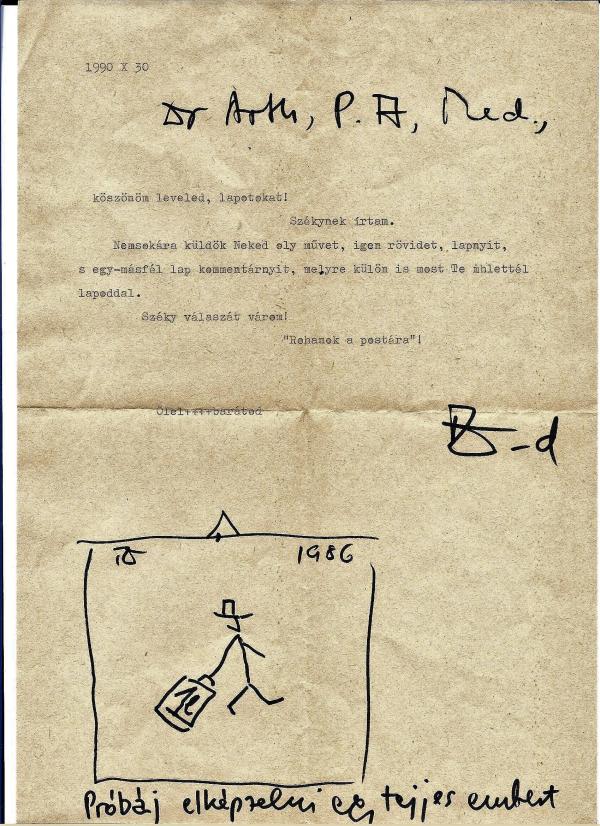 1990 X 30
Dr Arth, P. A, Med.,
köszönöm leveled, lapotokat!
Székynek írtam.
Nemsokára küldök Neked oly művet, igen rövidet, lapnyit,
s egy-másfél lap kommentárnyit, melyre külön is most Te ihlettél
lapoddal.
Széky válaszát várom!
"Rohanok a postára"!
Ölel++++barátod
-d
1986
Próbáj elképzelni egy tejjes embert